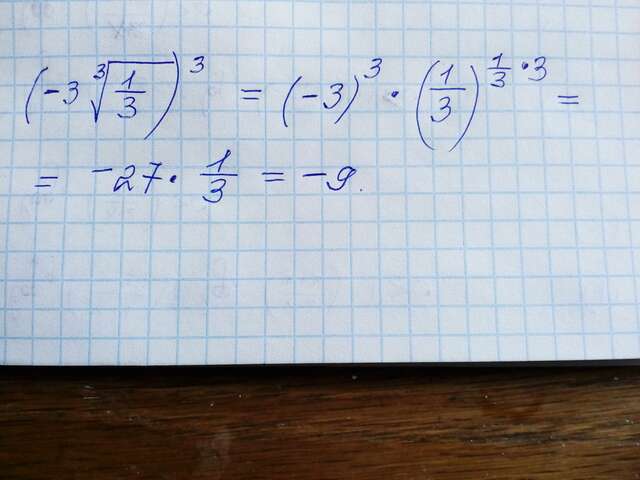 (-3 ∛(1/3))³ = (-3)³ · (1/3)^(1/3 · 3) =
= -27 · 1/3 = -9.